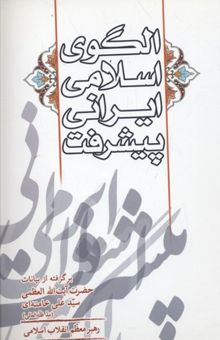 الگوی
اسلامی
ایرانی
پیشرفت
برگرفته از بیانات
حضرت آیت‌الله العظمی
سیّد علی خامنه‌ای
رهبر معظم انقلاب اسلامی